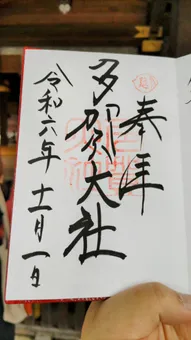 奉拝
多賀大社
令和六年十一月一日